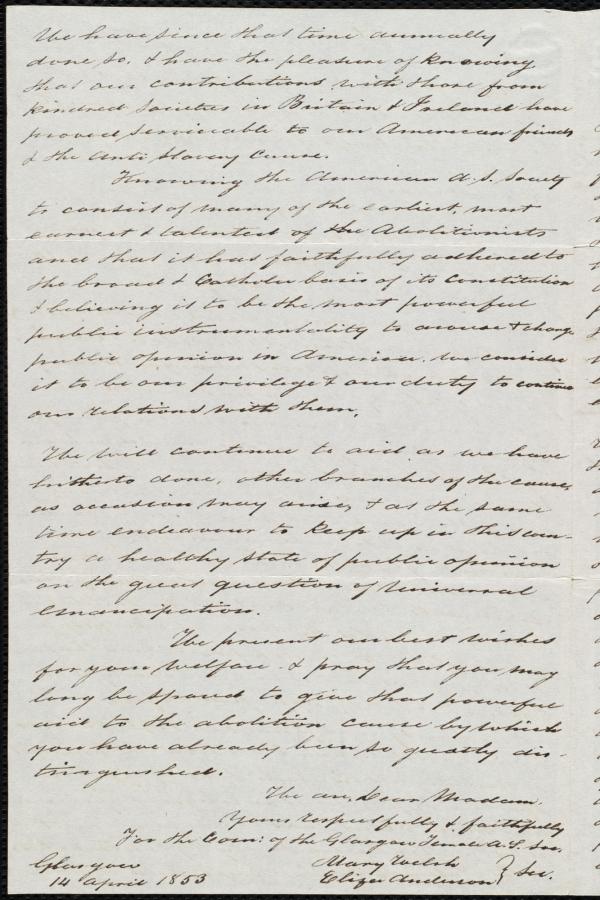 We have since that time annually
done so, & have the pleasure of knowing
that our contributions with those from
kindred Societies in Britain & Ireland have
proved serviceable to our American friends
& the Anti Slavery Cause.
Knowing the American A. S. Society
to consist of many of the earliest, most
earnest & talented of the Abolitionists
and that it has faithfully adhered to
the broad & Catholic basis of its Constitution
& believing it to be the most powerful
public instrumentality to arouse & change
public opinion in America. we consider
it to be our privilege & our duty to continue
our relations with them.
We will continue to aid as we have
hitherto done, other branches of the cause,
as occasion may arise, & at the same
time endeavour to keep up in this coun-
try a healthy state of public opinion
on the great question of Universal
Emancipation.
We present our best wishes
for your welfare & pray that you may
long be spared to give that powerful
aid to the abolition cause by which
you have already been so greatly dis-
tinguished.
We are, Dear Madam,
Yours respectfully & faithfully
For the Com: of the Glasgow Female A. S. Soc.
Mary Welsh } Sec.
Eliza Anderson
Glasgow
14 April 1853